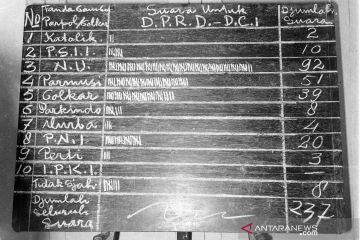 No Tanda Gambar Parpol/Golkar Suara Untuk D.P.R.D.-D.C.I Djumlah Suara
1 Katolik 2
2 P.S.I.I. 10
3 N.U. 92
4 Parmusi 51
5 Golkar 39
6 Parkindo 8
7 Murba 4
8 P.N.I 20
9 Perti 3
10 I.P.K.I. —
Tidak Sjah 8
Djumlah Seluruh Suara 237
ANTARANEWS.com